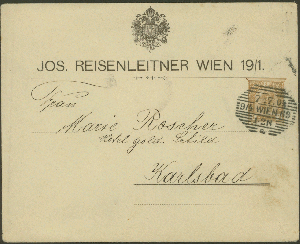 JOS. REISENLEITNER WIEN 19/1.
Frau
Marie Roscher
Hotel gold. Schild
Karlsbad
9/3 WIEN 69